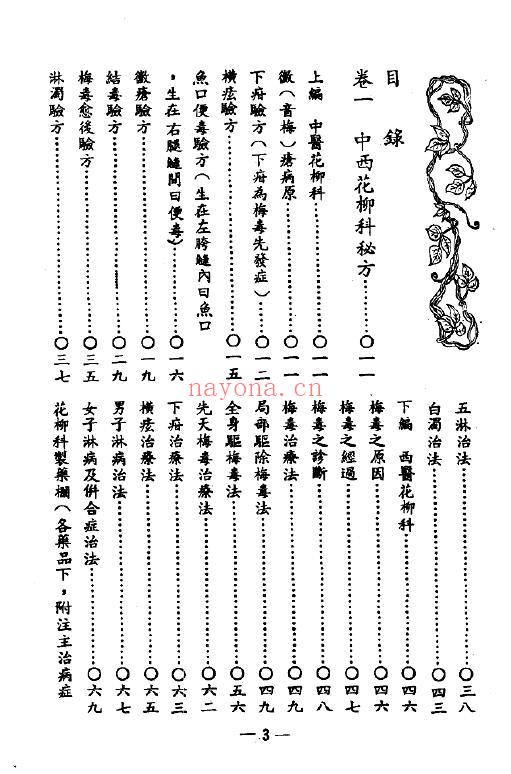 目錄
卷一 中西花柳科秘方……〇一一
上編 中醫花柳科……〇一一
黴(音梅)瘡病原……〇一一
下疳驗方(下疳為梅毒先發症)……〇一二
橫痃驗方……〇一五
魚口便毒驗方(生在左胯縫內曰魚口
，生在右腿縫間曰便毒)……〇一六
黴瘡驗方……〇一九
結毒驗方……〇二九
梅毒愈後驗方……〇三五
淋濁驗方……〇三七
五淋治法……〇三八
白濁治法……〇四三
下編 西醫花柳科……〇四六
梅毒之原因……〇四六
梅毒之經過……〇四七
梅毒之診斷……〇四八
梅毒治療法……〇四九
局部驅除梅毒法……〇四九
全身驅梅毒法……〇五六
先天梅毒治療法……〇六二
下疳治療法……〇六三
橫痃治療法……〇六五
男子淋病治法……〇六七
女子淋病及併合症治法……〇六九
花柳科製藥欄(各藥品下，附注主治病症
— 3 —
nayona.cn